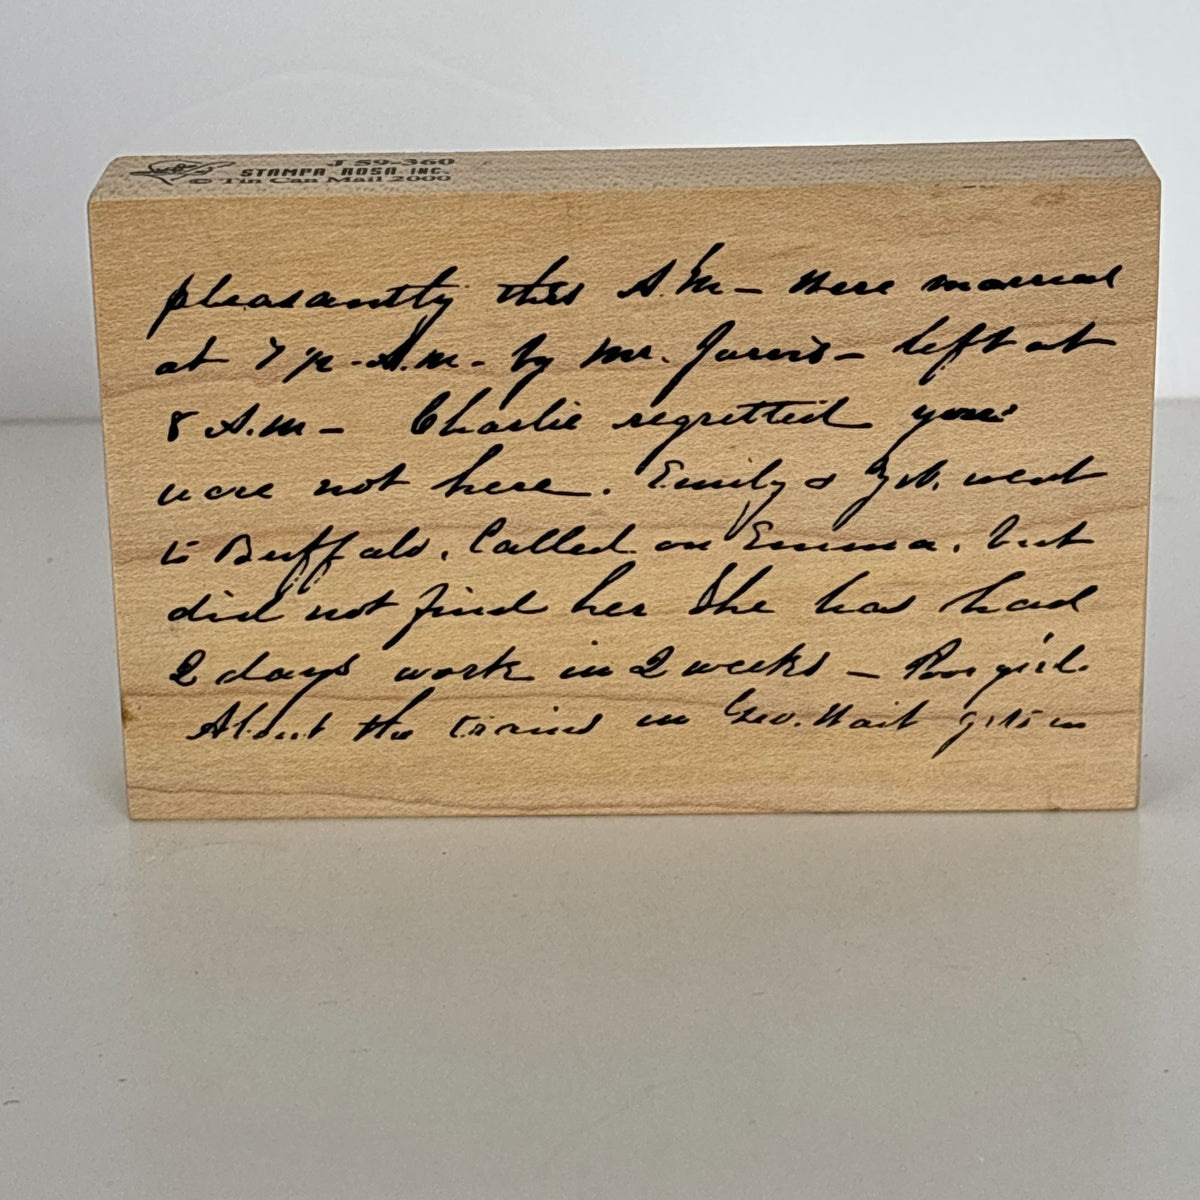 J 59-360
STAMPA ROSA INC.
© Tin Can Mail 2000
pleasantly this A.M – were married
at 7 A.M. – by Mr. Jarvis – left at
8 A.M – Charlie regretted you
were not here. Emily & went
to Buffalo. Called on Emma, but
did not find her She has had
2 days work in 2 weeks – Poor girl.
About the in Geo. gets in